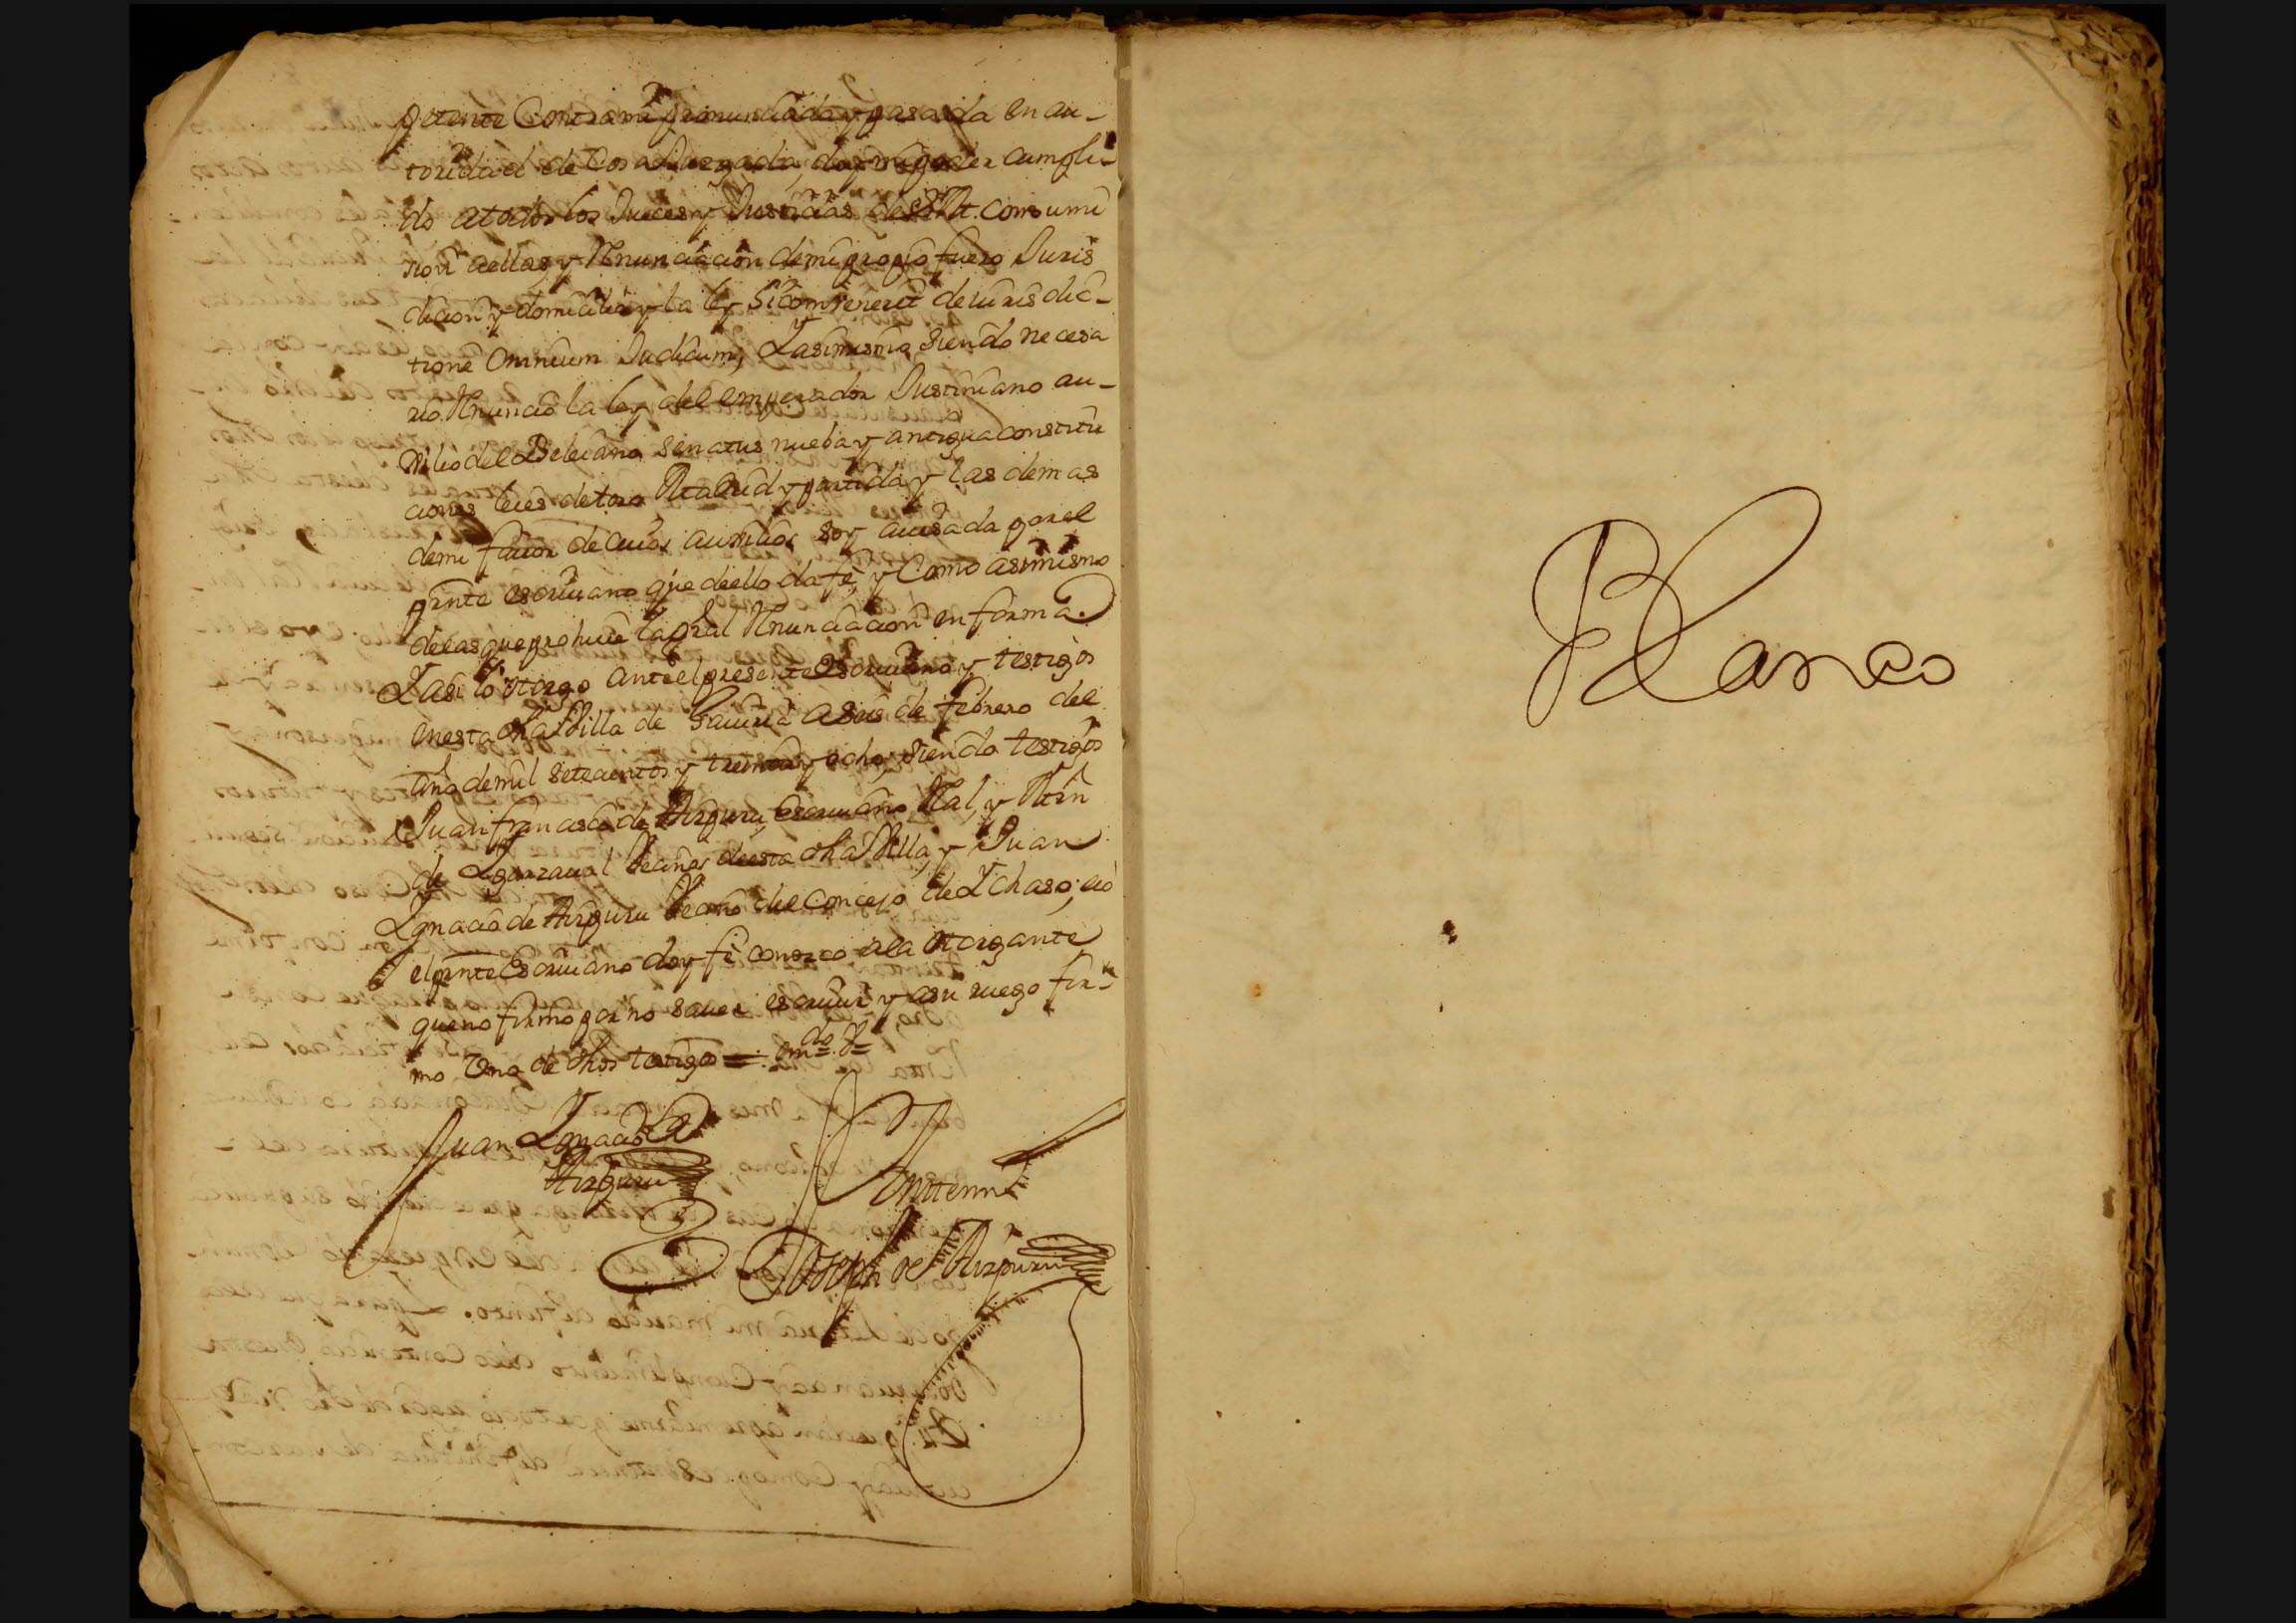 petente Contra mi pronunciada y pasada en au-
toridad de Cosa Juzgada, doy mi poder cumpli-
do atodos los Jueces y Justicias de S. M. con sumi
sion aellas y Renunciacion demi propio fuero Juris
dicion y domicilio y la ley Sicombenerit de iuris dic-
tione Omnium Judicum, Y asimismo siendo necesa
rio Renuncio la ley del emperador Justiniano au-
xilio del Beleiano senatus nueba y antigua constitu
ciones leies de toro Madrid y partida y las demas
demi fauor de cuios auxilios soy auisada por el
prnte escriuano que deello da fe, y Como asimismo
delas que prohiue la gral Renunciacion en forma.
Y asi lo otorgo ante el presente escriuano y testigos
enesta dha Villa de Gauiria a seis de febrero del
año demil setecientos y treinta y ocho, siendo testigos
Juan francisco de Aizpuru, escriuano Real, y Mrn
de Yganzaual Vecinos deesta dha Villa, y Juan
Ygnacio de Aizpuru Vecino del concejo de Ychaso, eio
el prnte Escriuano doy fe conozco ala Otorgante
que no firmo por no sauer escriuir y asu ruego fir-
mo Vno de dhos testigos = emdo. V=
Juan Ygnacio de
Aizpuru
Antemi
Joseph de Aizpuru
Blanco